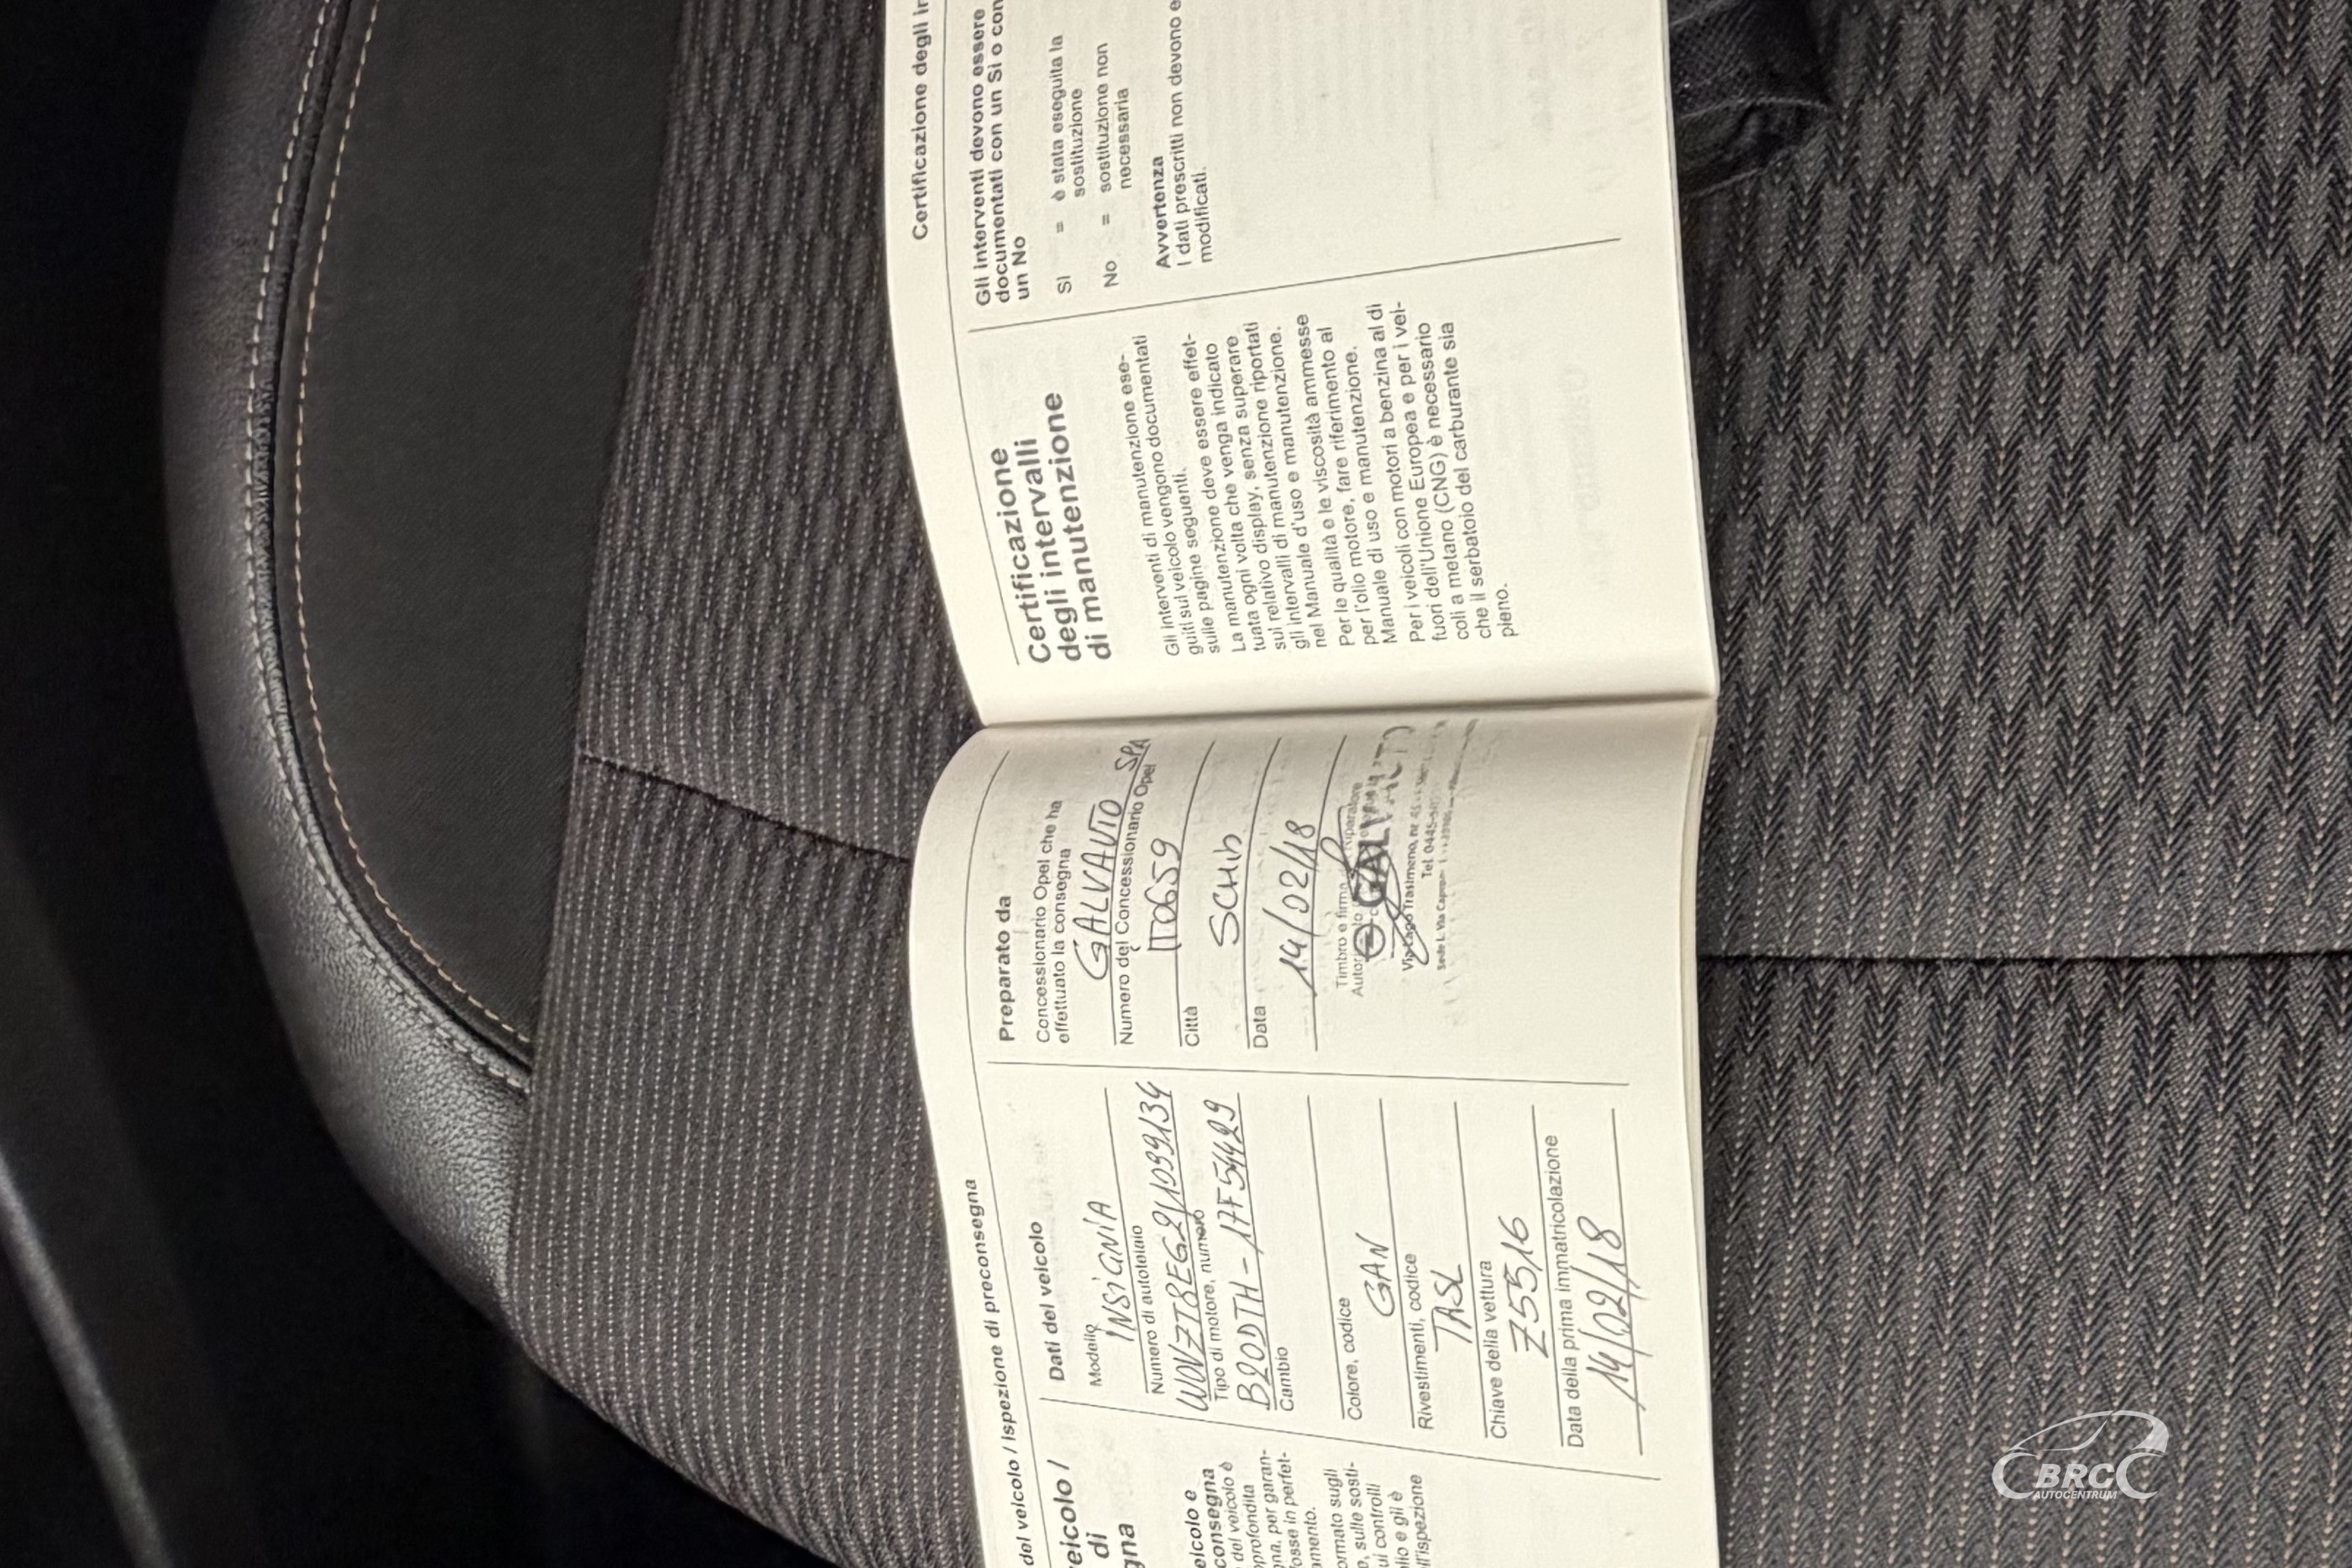 del veicolo / Ispezione di preconsegna
veicolo /
di
gna
eicolo e
consegna
del veicolo è
pprofondita
gna, per garan-
fosse in perfet-
amento.
ormato sugli
o, sulle sosti-
ui controlli
lio e gli è
ll'ispezione
Dati del veicolo
Modello
INSIGNIA
Numero di autotelaio
W0VZT8EG2J1099134
Tipo di motore, numero
B20DTH - 17F54429
Cambio
Colore, codice
GAN
Rivestimenti, codice
TASL
Chiave della vettura
Z5516
Data della prima immatricolazione
14/02/18
Preparato da
Concessionario Opel che ha
effettuato la consegna
GALVAUTO SPA
Numero del Concessionario Opel
IT0659
Città
SCHIO
Data
14/02/18
Timbro e firma
Riparatore
GALVAUTO
Via Lago Trasimeno, nr.
Tel. 0445
Certificazione
degli intervalli
di manutenzione
Gli interventi di manutenzione ese-
guiti sul veicolo vengono documentati
sulle pagine seguenti.
La manutenzione deve essere effet-
tuata ogni volta che venga indicato
sul relativo display, senza superare
gli intervalli di manutenzione riportati
nel Manuale d'uso e manutenzione.
Per le qualità e le viscosità ammesse
per l'olio motore, fare riferimento al
Manuale di uso e manutenzione.
Per i veicoli con motori a benzina al di
fuori dell'Unione Europea e per i vei-
coli a metano (CNG) è necessario
che il serbatoio del carburante sia
pieno.
Certificazione degli in
Gli interventi devono essere
documentati con un Sì o con
un No
Sì = è stata eseguita la
sostituzione
No = sostituzione non
necessaria
Avvertenza
I dati prescritti non devono e
modificati.
BRC
AUTOCENTRUM